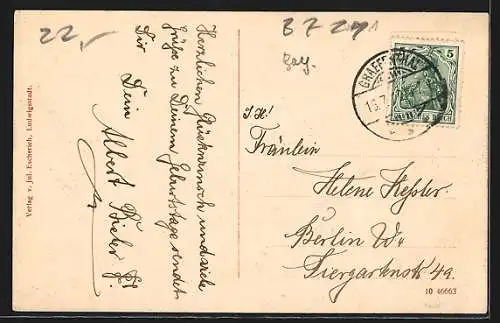 22,-
B Z 2
Bay.
Herzlichen Glückwunsch und viele
Grüße zu Deinem Geburtstage sendet
Dir
Dein Albert
Verlag v. Jul. Escherich, Ludwigsstadt.
5
GRAEFENTHAL
DEUTSCHES REICH
S. H!
Fräulein
Helene Kessler
Berlin W.
Tiergartenstr 49.
10 46663